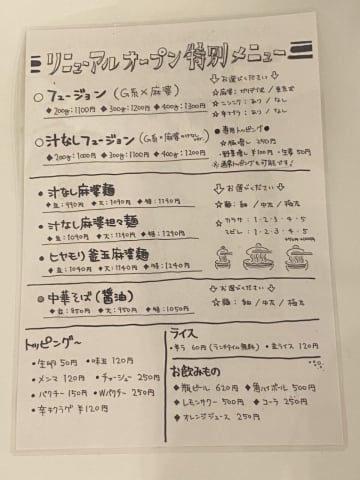 リニューアルオープン 特別メニュー
○フュージョン（G系×麻婆）
◆200g:1100円 ◆300g:1200円 ◆400g:1300円
お選びください
☆ニンニク：あり / なし
○汁なしフュージョン
◆200g:1000円 ◆300g:1100円 ◆400g:1200円
●専用トッピング●
●汁なし麻婆麺
◆並:990円 ◆大:1090円 ◆特:1190円
●汁なし麻婆担々麺
◆並:1090円 ◆大:1190円 ◆特:1290円
●ヒヤモリ釜玉麻婆麺
◆並:1040円 ◆大:1140円 ◆特:1240円
お選びください
☆麺：細 / 中太 / 極太
☆カラサ：1・2・3・4・5
☆シビレ：1・2・3・4・5
◎中華そば（醤油）
◆並:850円 ◆大:950円 ◆特:1050円
お選びください
☆麺：細 / 中太 / 極太
トッピング〜
・生卵 50円 ・味玉 120円
・メンマ 120円 ・チャーシュー 250円
・パクチー 150円 ・Wパクチー 250円
・辛キクラゲ ¥120円
ライス
・半ラ 60円（ランチタイム無料） ・並ライス 120円
お飲みもの
◆瓶ビール 620円 ◆角ハイボール 500円
◆レモンサワー 500円 ◆コーラ 250円
◆オレンジジュース 250円